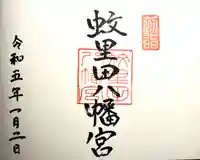 蚊里田八幡宮
令和五年一月二日